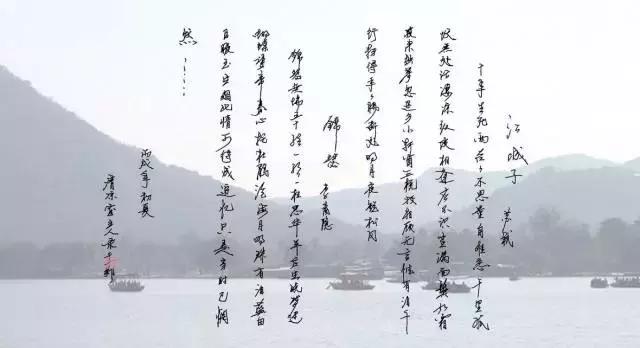 江城子 苏轼
十年生死两茫々不思量自难忘千里孤
坟无处话凄凉纵使相逢应不识尘满面鬓如霜
夜来幽梦忽还乡小轩窗正梳妆相顾无言惟有泪千
行料得年々肠断处明月夜短松冈
锦瑟 李商隐
锦瑟无端五十弦一弦一柱思华年庄生晓梦迷
蝴蝶望帝春心托杜鹃沧海月明珠有泪蓝田
日暖玉生烟此情可待成追忆只是当时已惘
然……
丙戌年初夏